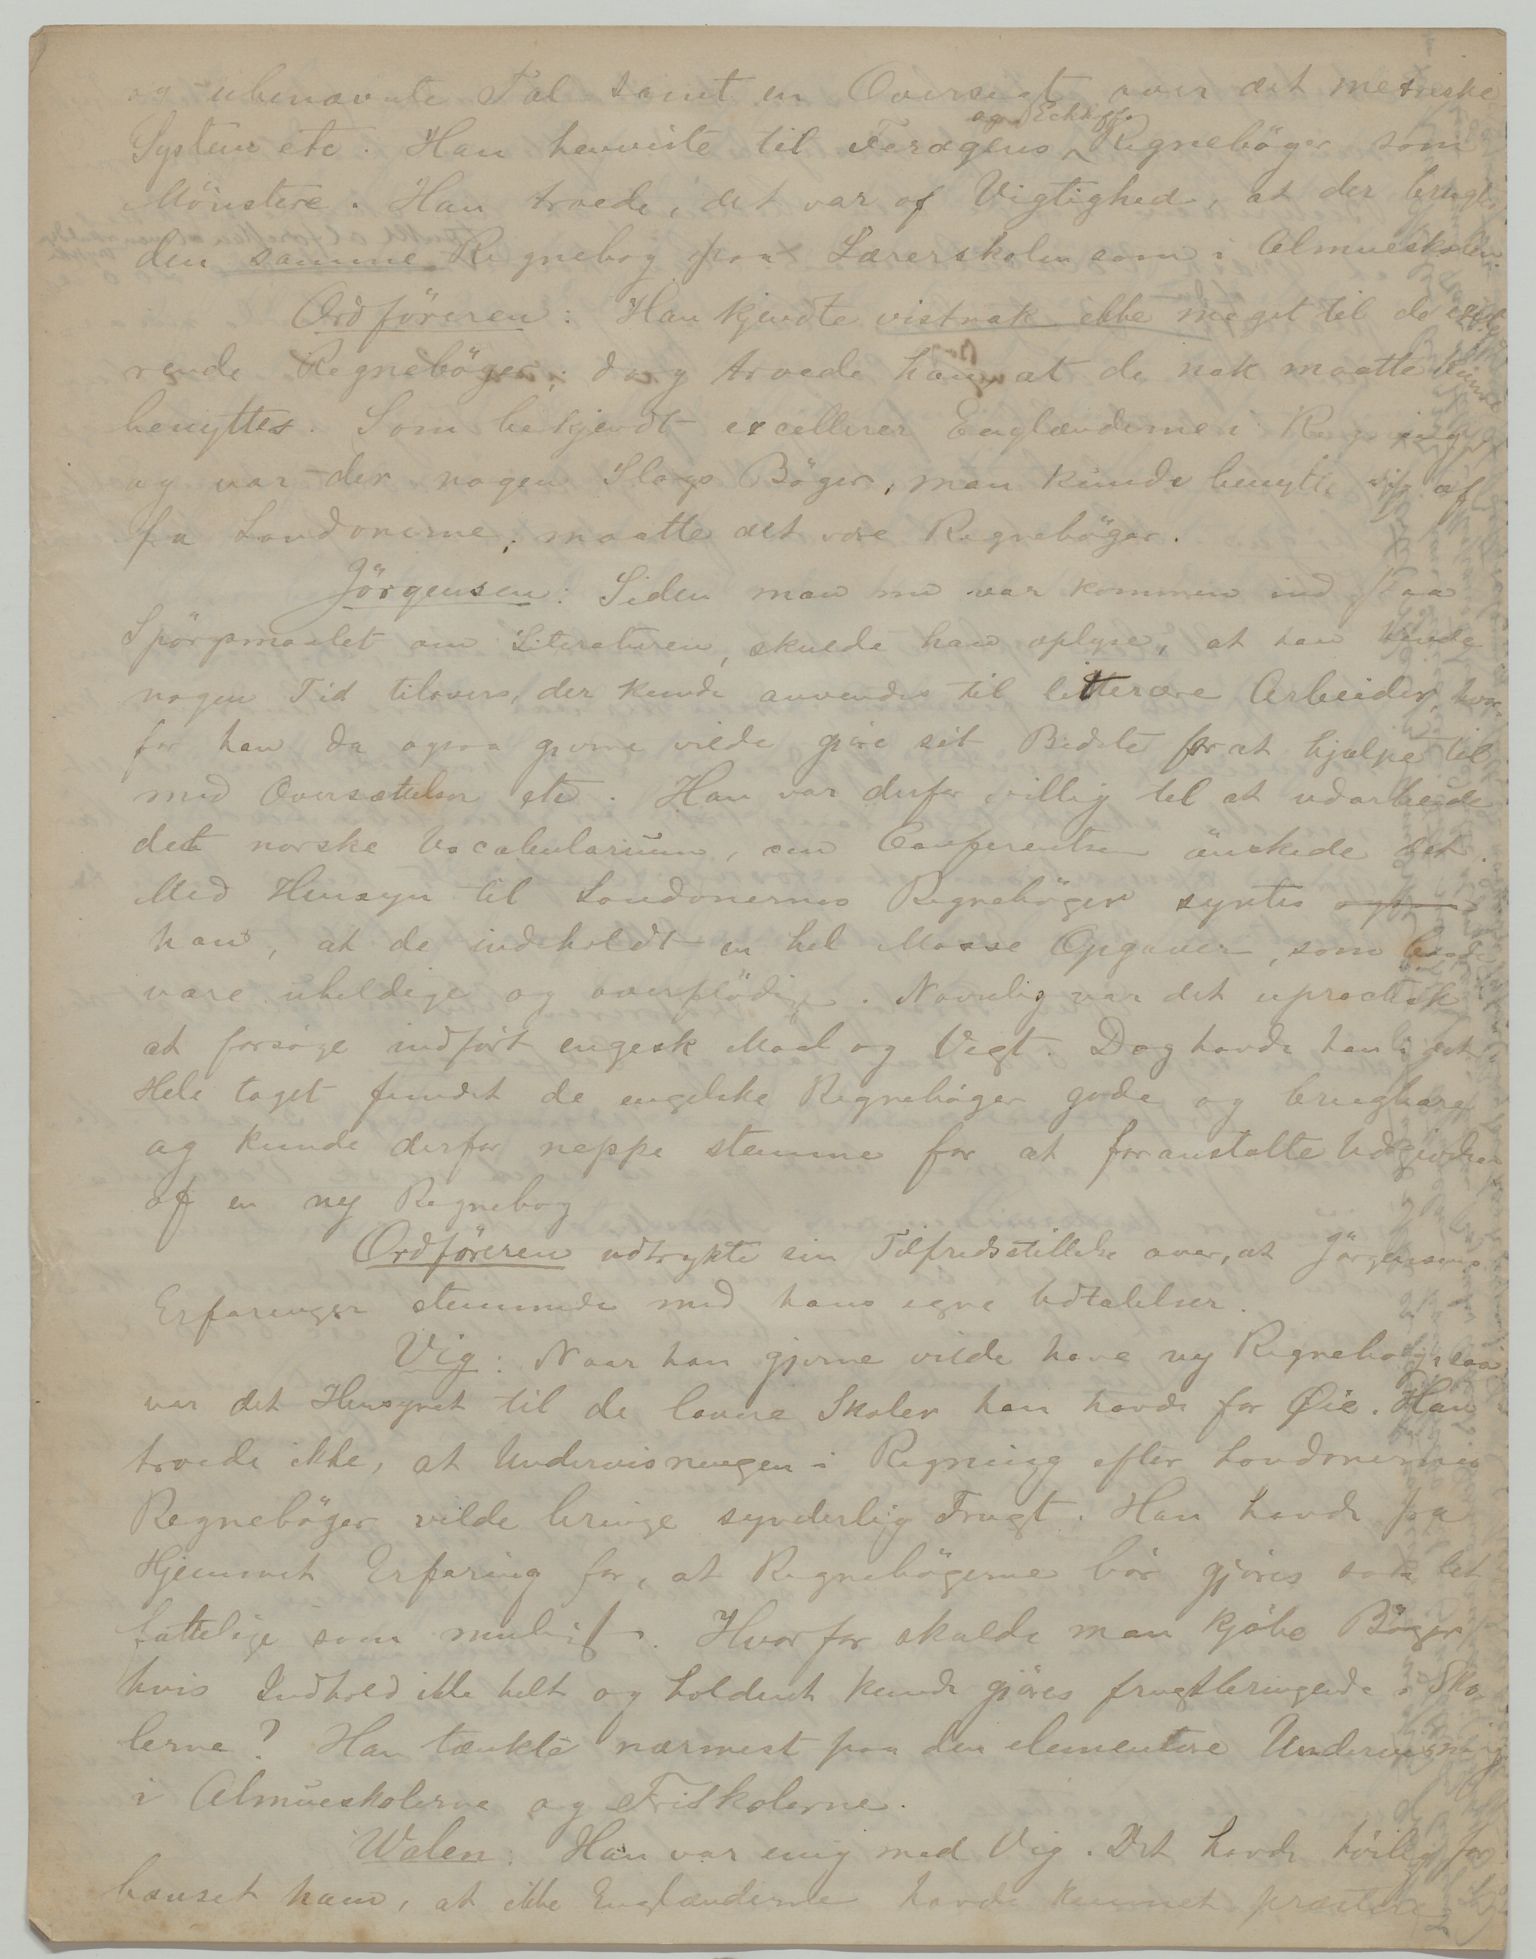 og ubenævnte Tal samt en Oversigt over det metriske
og Eckhoffs
System etc. Han henviste til Feragens Regnebøger som
Mönstere. Han troede, det var af Vigtighed, at der brugt
den samme Regnebog paa Lærerskolen som i Almueskolen.
Ordföreren: Han kjendte vistnok ikke meget til de existe
rende Regnebøger; dog troede han, at de nok maatte kunne
benyttes. Som bekjendt excellerer Englænderne i Regning
og var der nogen Slags Böger, man kunde benytte sig af
fra Londonerne, maatte det være Regneböger.
Jörgensen: Siden man nu var kommen ind paa
Spörgsmaalet om Literaturen, skulde han oplyse, at han havde
nogen Tid tilovers, der kunde anvendes til litterære Arbeider, hvor-
for han da ogsaa gjerne vilde gjöre sit Bedste for at hjælpe til
med Oversættelser etc. Han var derfor villig til at udarbeide
det norske Vocabularium, om Conferentsen önskede det.
Med Hensyn til Londonernes Regneböger syntes ogsaa
han, at de indeholdt en hel Masse Opgaver, som baade
vare uheldige og overflödige. Navnlig var det upractisk
at forsöge indfört engelsk Maal og Vegt. Dog havde han i det
Hele taget fundet de engelske Regneböger gode og brugbare
og kunde derfor neppe stemme for at foranstalte Udgivelsen
af en ny Regnebog
Ordföreren udtrykte sin Tilfredsstillelse over, at Jörgensens
Erfaringer stemmede med hans egne Udtalelser.
Vig: Naar han gjerne vilde have ny Regnebog, saa
var det Hensynet til de lavere Skoler han havde for Øie. Han
troede ikke, at Undervisningen i Regning efter Londonernes
Regneböger vilde bringe synderlig Frugt. Han havde fra
Hjemmet Erfaring for, at Regnebögerne bör gjöres saa let
fattelige som muligt. Hvorfor skulde man kjöbe Böger,
hvis Indhold ikke helt og holdent kunde gjöres frugtbringende i Sko
lerne? Han tænkte nærmest paa den elementære Undervisning
i Almueskolerne og Friskolerne.
Walen: Han var enig med Vig. Det havde höilig for
bauset ham, at ikke Englænderne havde kunnet præstere